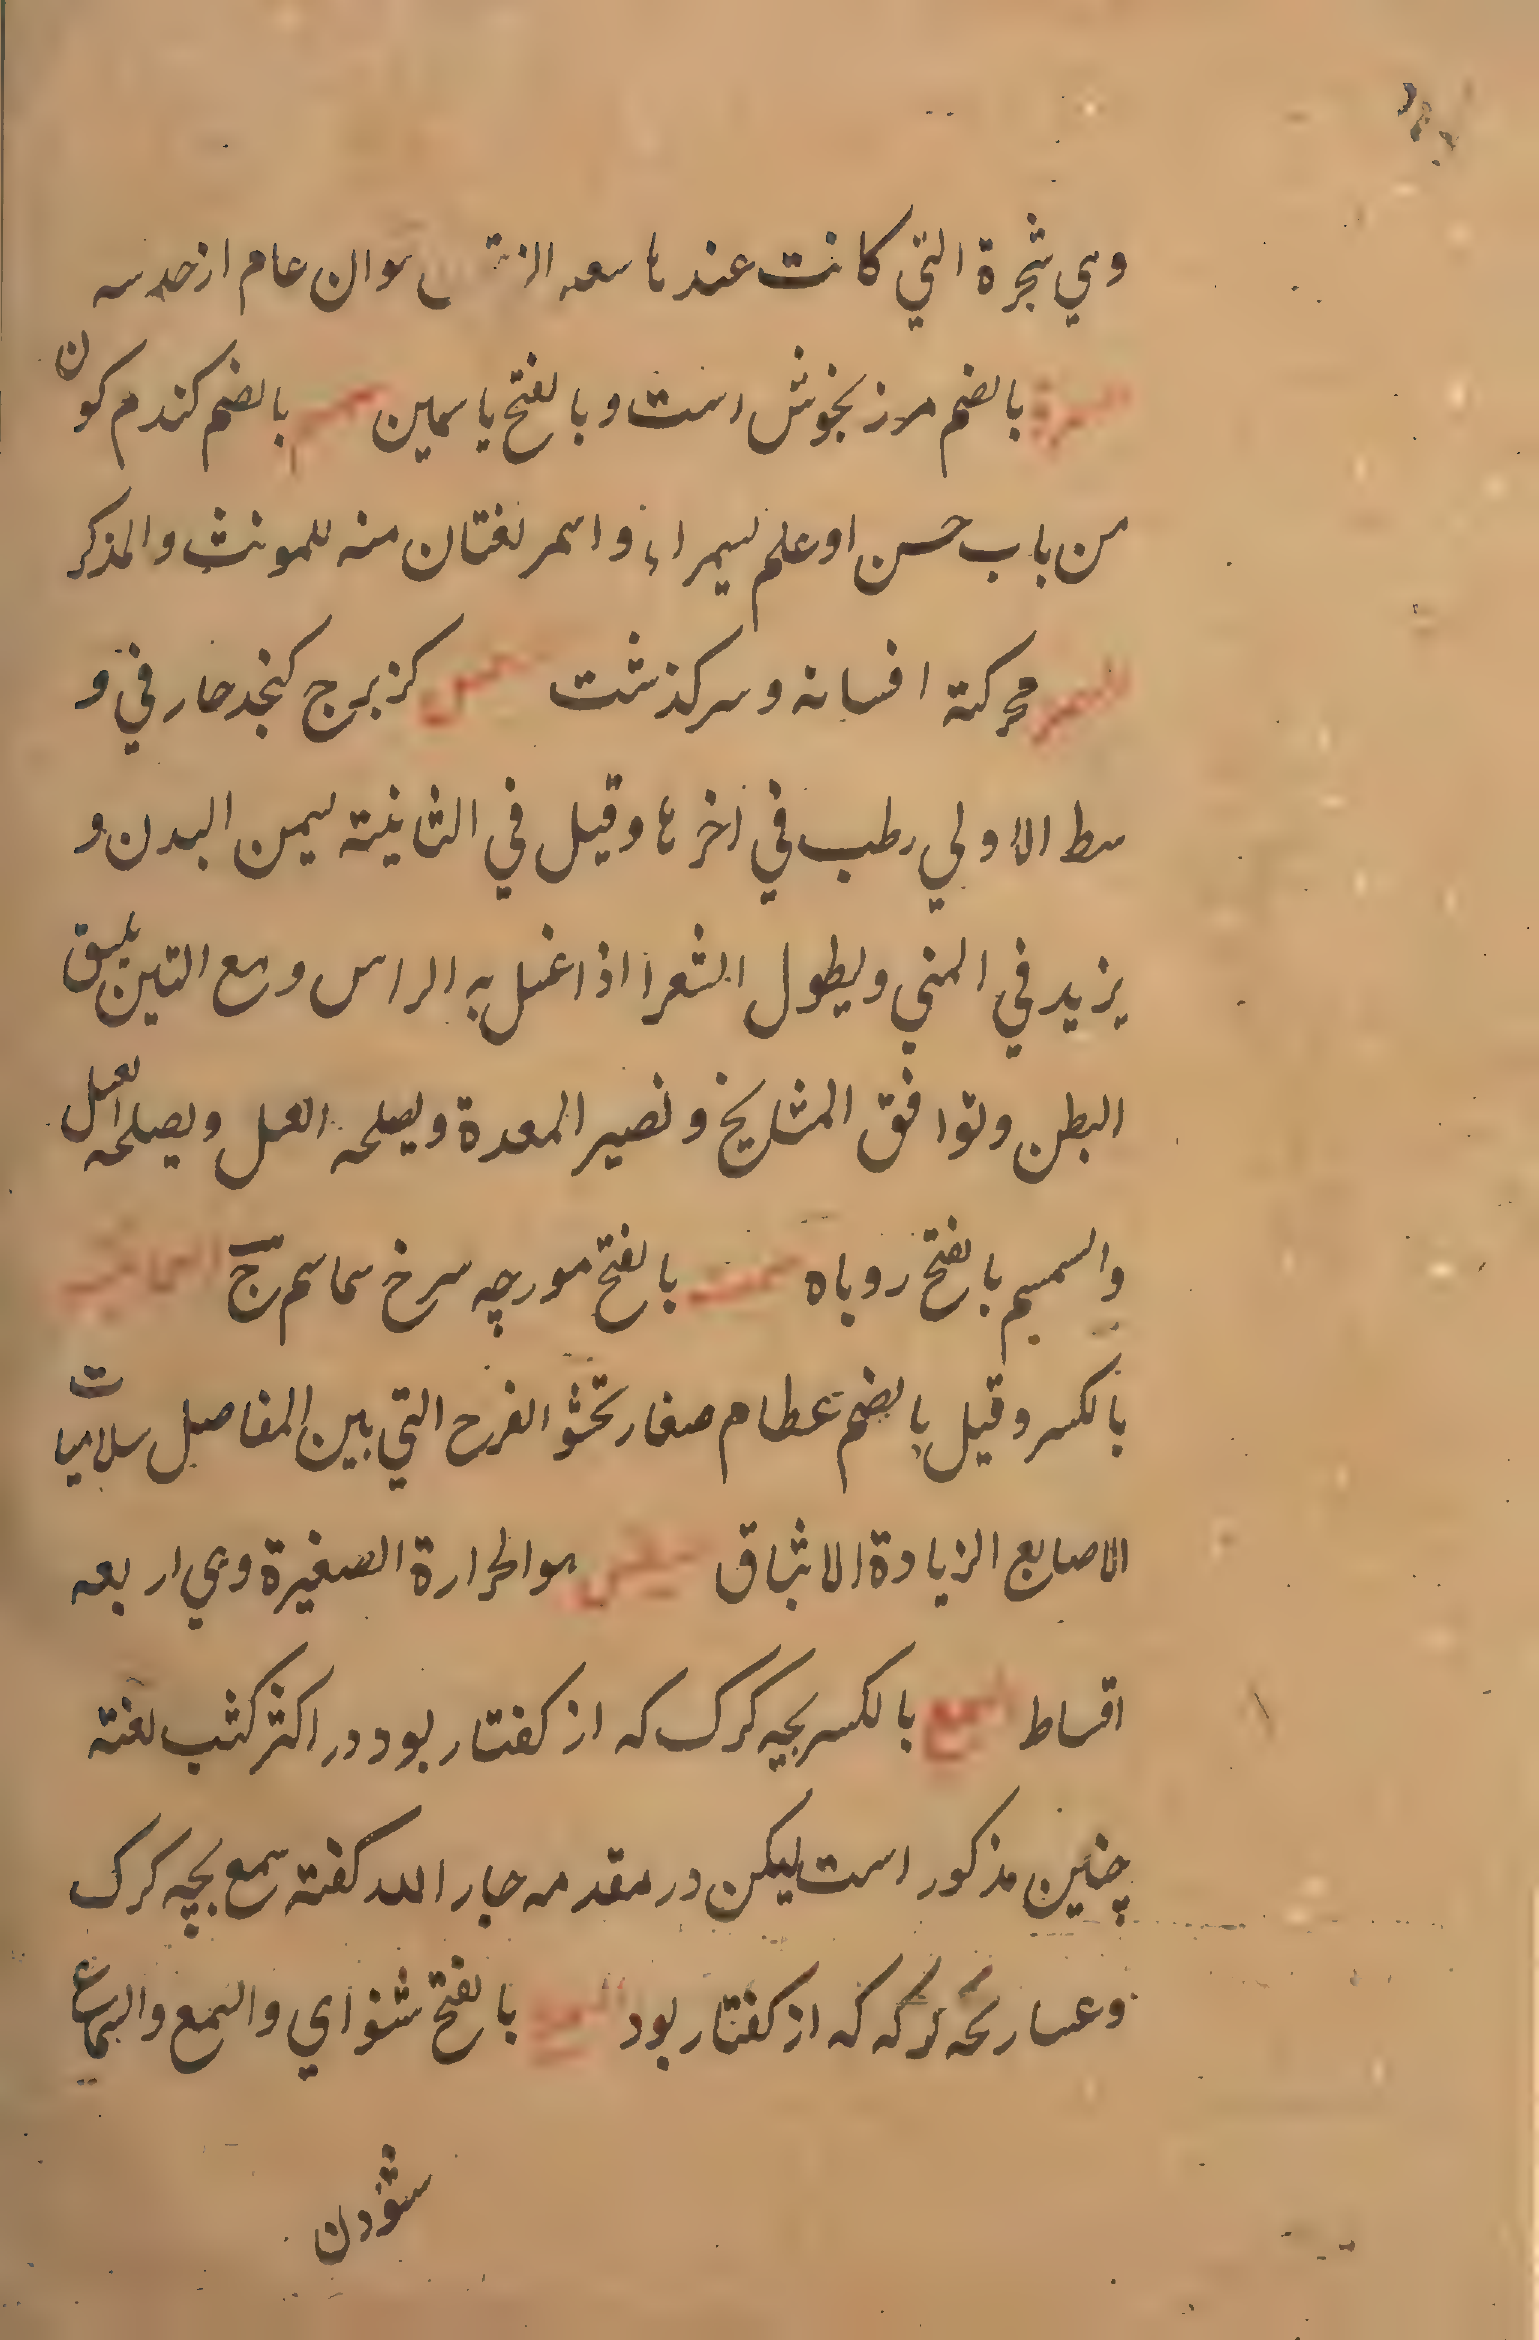 وهي شجرة التي كانت عندها سعه سوان عام از
بالضم مرزنجوش است و بالفتح یاسمین بالضم کندم کون
من باب حسن او علم سمراء و اسمر لغتان منه للمونث والمذکر
السمر محرکته افسانه و سرکذشت کزبرج کنجد حار في و
سط الاولي رطب في اخرها وقیل في الثانیته یسمن البدن و
یزید في المني و یطول الشعر اذا غسل به الراس و مع التین
البطن و توافق المشایخ و تضیر المعدة و یصلحه العسل و یصلحه العسل
والسمسم بالفتح روباه بالفتح مورچه سرخ سماسم ج
بالکسر و قیل بالضم عظام صغار تحشو الفرج التي بین المفاصل سلامیات
الاصابع الزیادة الانثاق هو الحرارة الصغیرة وهي اربعه
اقساط السمع بالکسر بچه کرک که از کفتار بود در اکثر کتب لغته
چنین مذکور است لیکن در مقدمه جار الله کفته سمع بچه کرک
و عسار بچه کرکه که از کفتار بود السمع بالفتح شنواي والسمع والسماع
شنودن